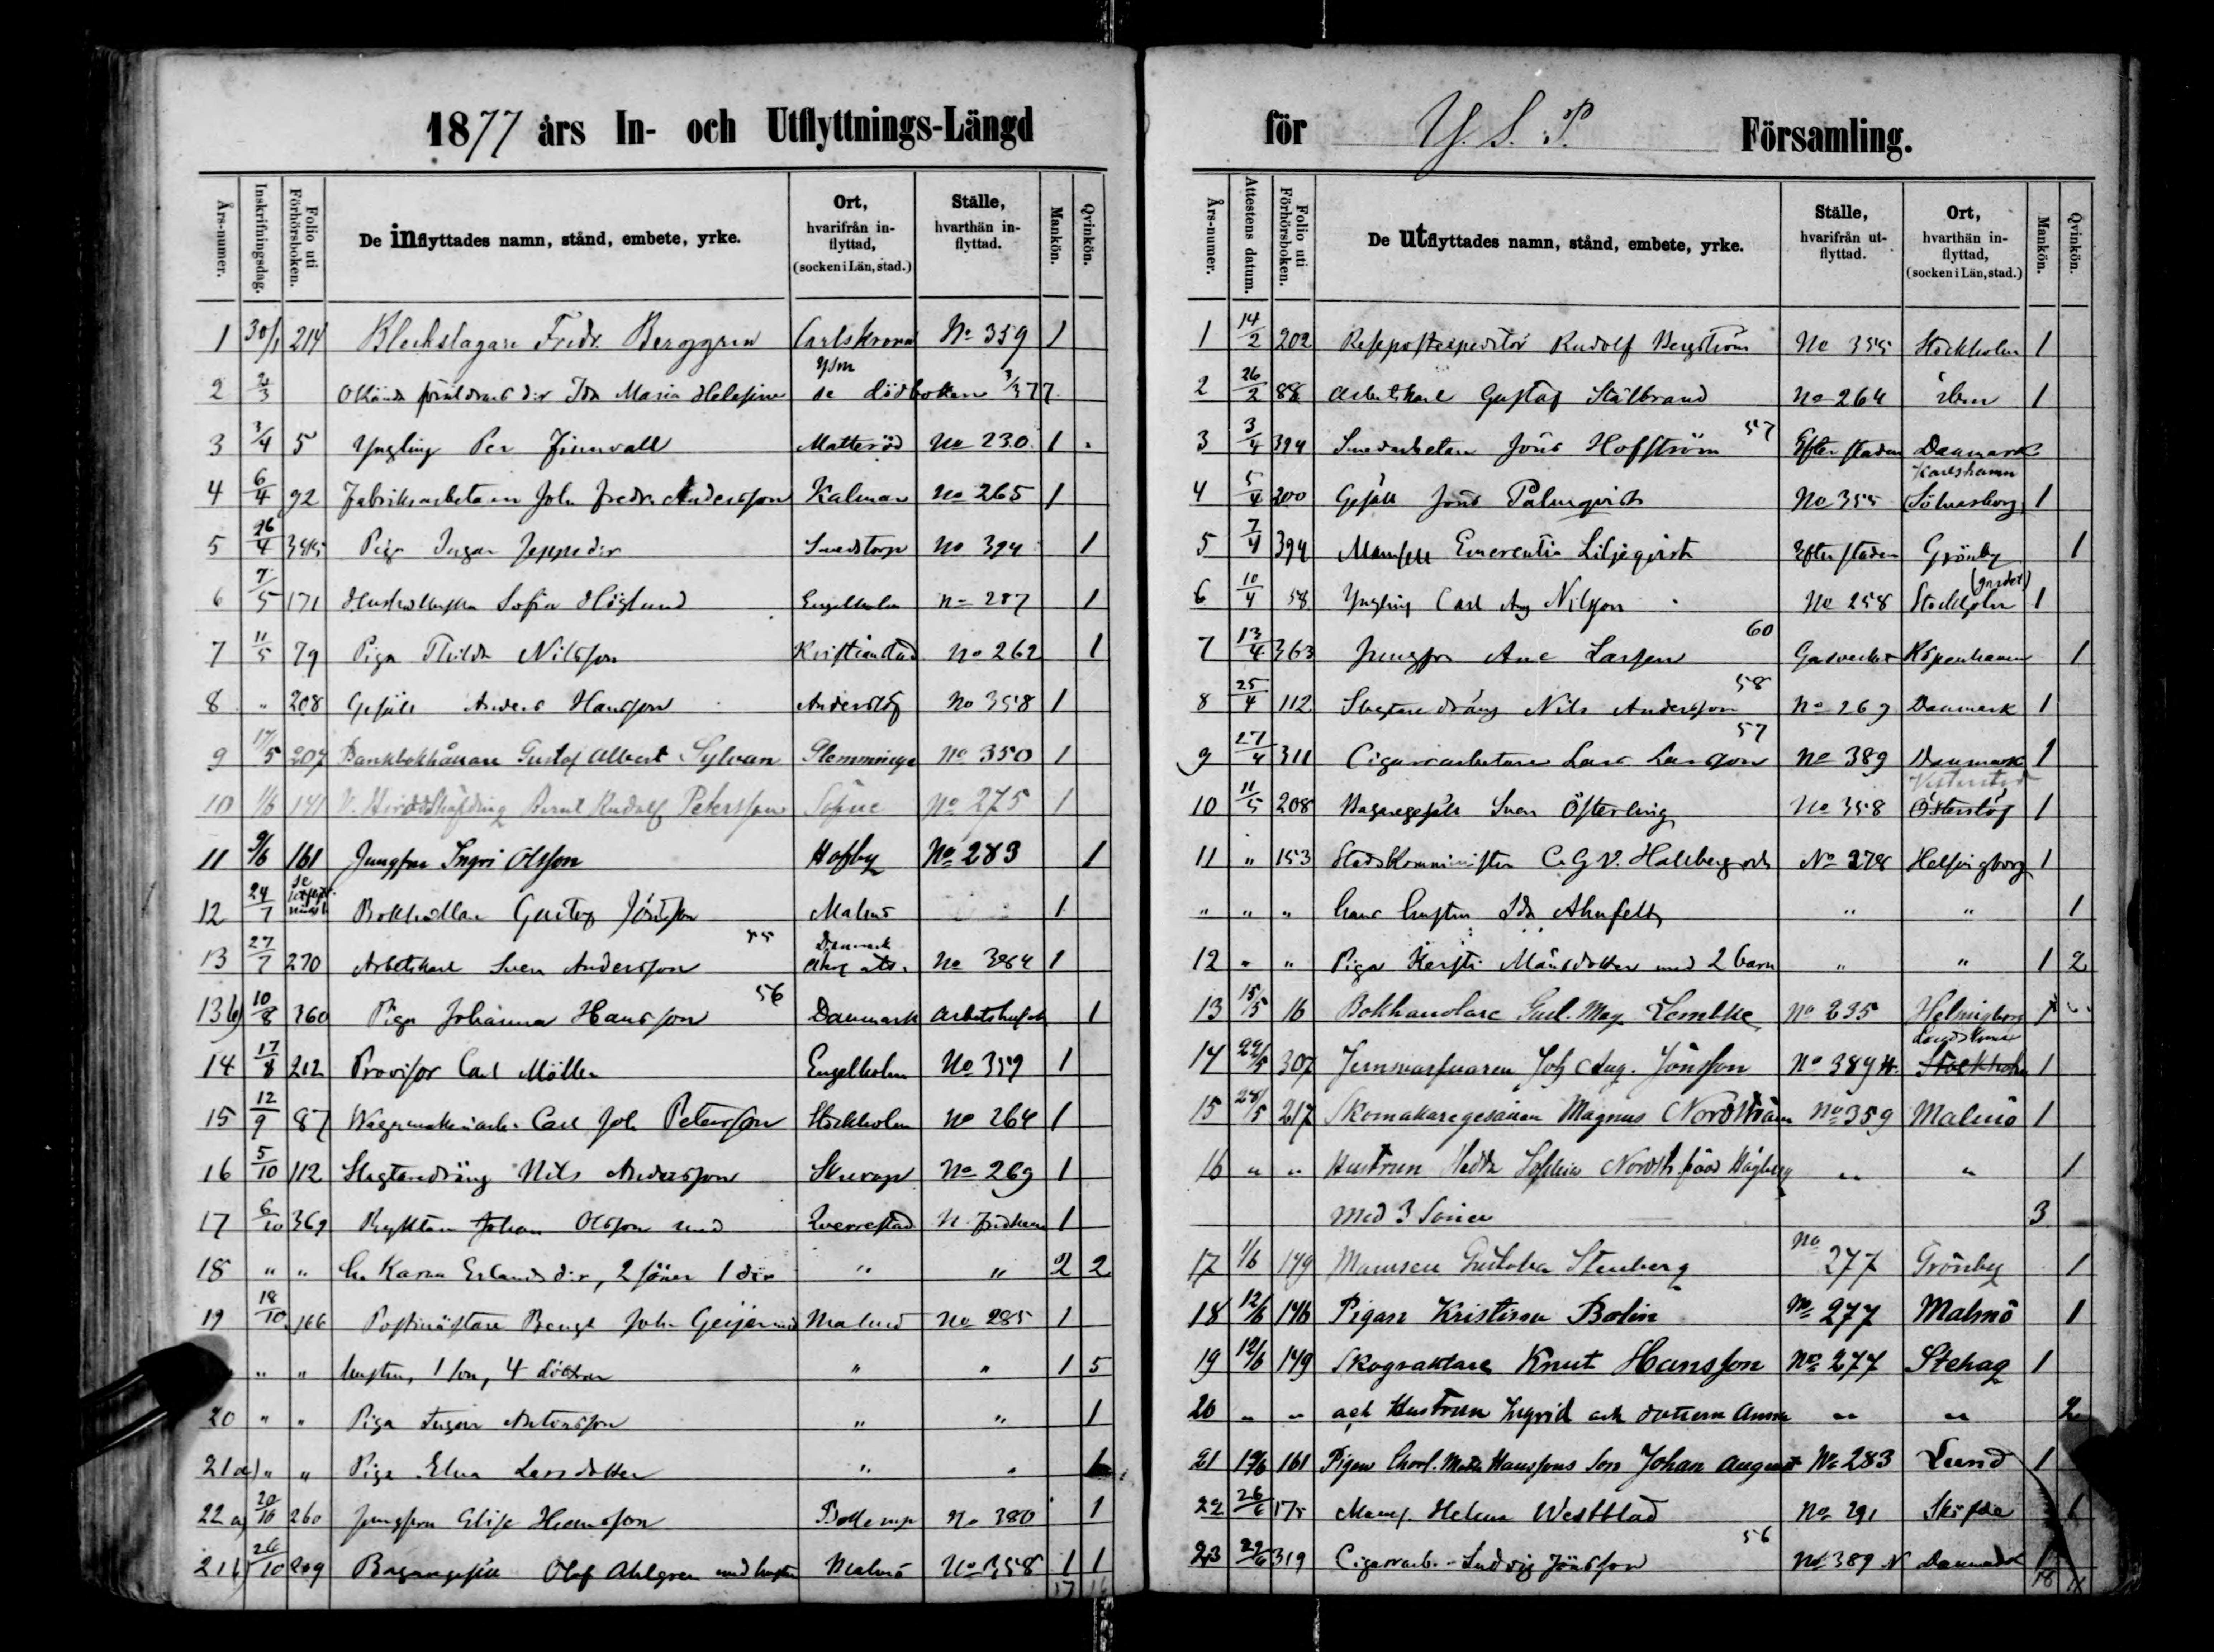 1877 års In- och Utflyttnings-Längd
Års-numer. Inskrifningsdag. Folio uti Förhörsboken. De inflyttades namn, stånd, embete, yrke. Ort, hvarifrån inflyttad, (socken i Län, stad.) Ställe, hvarthän inflyttad. Mankön. Qvinkön.
1 30/1 214 Bleckslagare Fredr. Berggren Carlskrona No 359 1
2 2/3 Okända föräldrars dr Ida Maria Helesine Ysm se dödboken 3/3 77
3 3/4 5 Yngling Per Finnvall Matteröd No 230 1
4 6/4 92 Fabriksarbetaren Joh. Fredr. Andersson Kalmar No 265 1
5 26/4 Piga Ingar Jeppsdr Smedstorp No 394 1
6 7/5 171 Sofia Höglund Engelholm No 287 1
7 11/5 79 Piga Thilda Nilsson Kristianstad No 262 1
8 " 208 Gesäll Anders Hansson Anderslöf No 358 1
9 17/5 207 Bankbokhållare Gustaf Albert Sylvan Glemminge No 350 1
10 1/6 141 V. Häradshöfding Bernt Rudolf Petersson No 275 1
11 9/6 161 Jungfrun Ingri Olsson Hofby No 283 1
12 24/7 se Bokhållare Gustaf Jönsson Malmö 1
13 27/7 270 Arbetskarl Sven Andersson 55 Danmark No 384 1
13 b) 10/8 360 Piga Johanna Hansson 56 Danmark Arbetshuset 1
14 17/8 212 Provisor Carl Möller Engelholm No 359 1
15 12/9 87 Carl Joh. Petersson Stockholm No 264 1
16 5/10 112 Slagtaredräng Nils Andersson Skurup No 269 1
17 6/10 369 Ryktaren Johan Olsson med Qverrestad N. Fridhem 1
18 " " h. Karna Erlandsdr, 2 söner 1 dtr " " 2 2
19 18/10 166 Postmästare Bengt Joh. Geijer med Malmö No 285 1
" " hustru, 1 son, 4 döttrar " " 1 5
20 " " Piga Ingar Antonsson " " 1
21 a) " " Piga Elna Larsdotter " " 1
22 a) 20/10 260 Jungfrun Elise Hermansson Bollerup No 380 1
21 b) 26/10 209 Bagaregesäll Olof Ahlgren med hustru Malmö No 358 1 1
17 16
för Y. S. P. Församling.
Års-numer. Attestens datum. Folio uti Förhörsboken. De utflyttades namn, stånd, embete, yrke. Ställe, hvarifrån utflyttad. Ort, hvarthän inflyttad, (socken i Län, stad.) Mankön. Qvinkön.
1 14/2 202 Resepostexpeditör Rudolf Bergström No 355 Stockholm 1
2 26/2 88 Arbetskarl Gustaf Stålbrand No 264 1
3 3/4 394 Smedarbetare Jöns Hofström 57 Efter staden Danmark
4 5/4 200 Gesäll Jöns Palmqvist No 355 Karlshamn (Sölvesborg) 1
5 7/4 394 Mamsell Emerentia Liljeqvist Efter staden Grönby 1
6 10/4 58 Yngling Carl Aug Nilsson No 258 Stockholm (gardet) 1
7 13/4 363 Jungfru Ane Larsen 60 Gasverket Köpenhamn 1
8 25/4 112 Slagtaredräng Nils Andersson 58 No 269 Danmark 1
9 27/4 311 Cigarrarbetaren Lars Larsson 57 No 389 Danmark 1
10 11/5 208 Bagaregesäll Sven Österling No 358 Österslöf 1
11 " 153 Stadskomminister C. G. V. Hallberg och No 278 Helsingborg 1
" " " hans hustru Ida Ahnfelt " " 1
12 " " Piga Kersti Månsdotter med 2 barn " " 1 2
13 15/5 16 Bokhandlare Gust. Mag Lembke No 235 Helsingborg 1
14 22/5 307 Joh Aug. Jönsson No 389 Landskrona Stockholm 1
15 28/5 217 Skomakaregesällen Magnus Nordström No 359 Malmö 1
16 " " Hustrun Hedda Sophia Nordstr. född Högberg " " 1
med 3 Söner 3
17 1/6 149 Mamsell Gustava Stenberg No 277 Grönby 1
18 12/6 146 Pigan Kristina Bolin No 277 Malmö 1
19 12/6 149 Skogvaktare Knut Hansson No 277 Stehag 1
20 " " och Hustrun Ingrid och dottern Anna " " 2
21 19/6 161 Pigan Charl. Math. Hanssons Son Johan August No 283 Lund 1
22 26/6 175 Mams. Helena Westblad No 291 Sköfde 1
23 29/6 319 Cigarrarb. Ludvig Jönsson 56 No 389 N Danmark 1
18 11